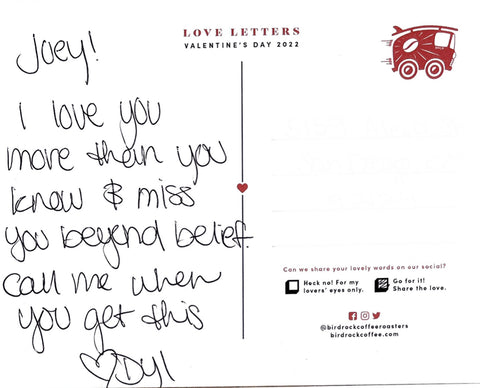 LOVE LETTERS
VALENTINE'S DAY 2022
Joey!
I love you
more than you
know & miss
you beyond belief.
call me when
you get this
♡Dyl
Can we share your lovely words on our social?
Heck no! For my
lovers' eyes only.
Go for it!
Share the love.
@birdrockcoffeeroasters
birdrockcoffee.com